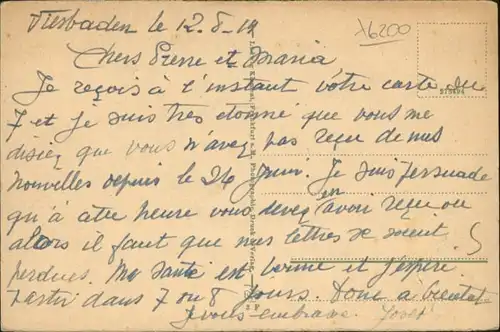 Wiesbaden le 12-8-19
16200
Chers Pierre et Maria,
Je reçois à l'instant votre carte du
7 et je suis très étonné que vous me
disiez que vous n'avez pas reçu de mes
nouvelles depuis le 26 Juin. Je suis persuadé
qu'à cette heure vous devez en avoir reçu ou
alors il faut que mes lettres se soient
perdues. Ma santé est bonne et j'espère
partir dans 7 ou 8 jours. Donc à bientôt
je vous embrasse.